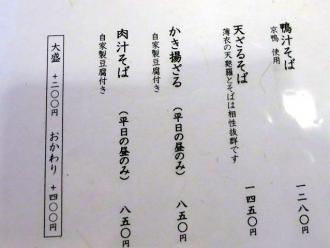 鴨汁そば 一二八〇
京鴨 使用
天ざるそば 一四五〇
薄衣の天麩羅とそばは相性抜群です
かき揚ざる (平日の昼のみ) 八五〇
自家製豆腐付き
肉汁そば (平日の昼のみ) 八五〇
自家製豆腐付き
大盛 +二〇〇円 おかわり +四〇〇円